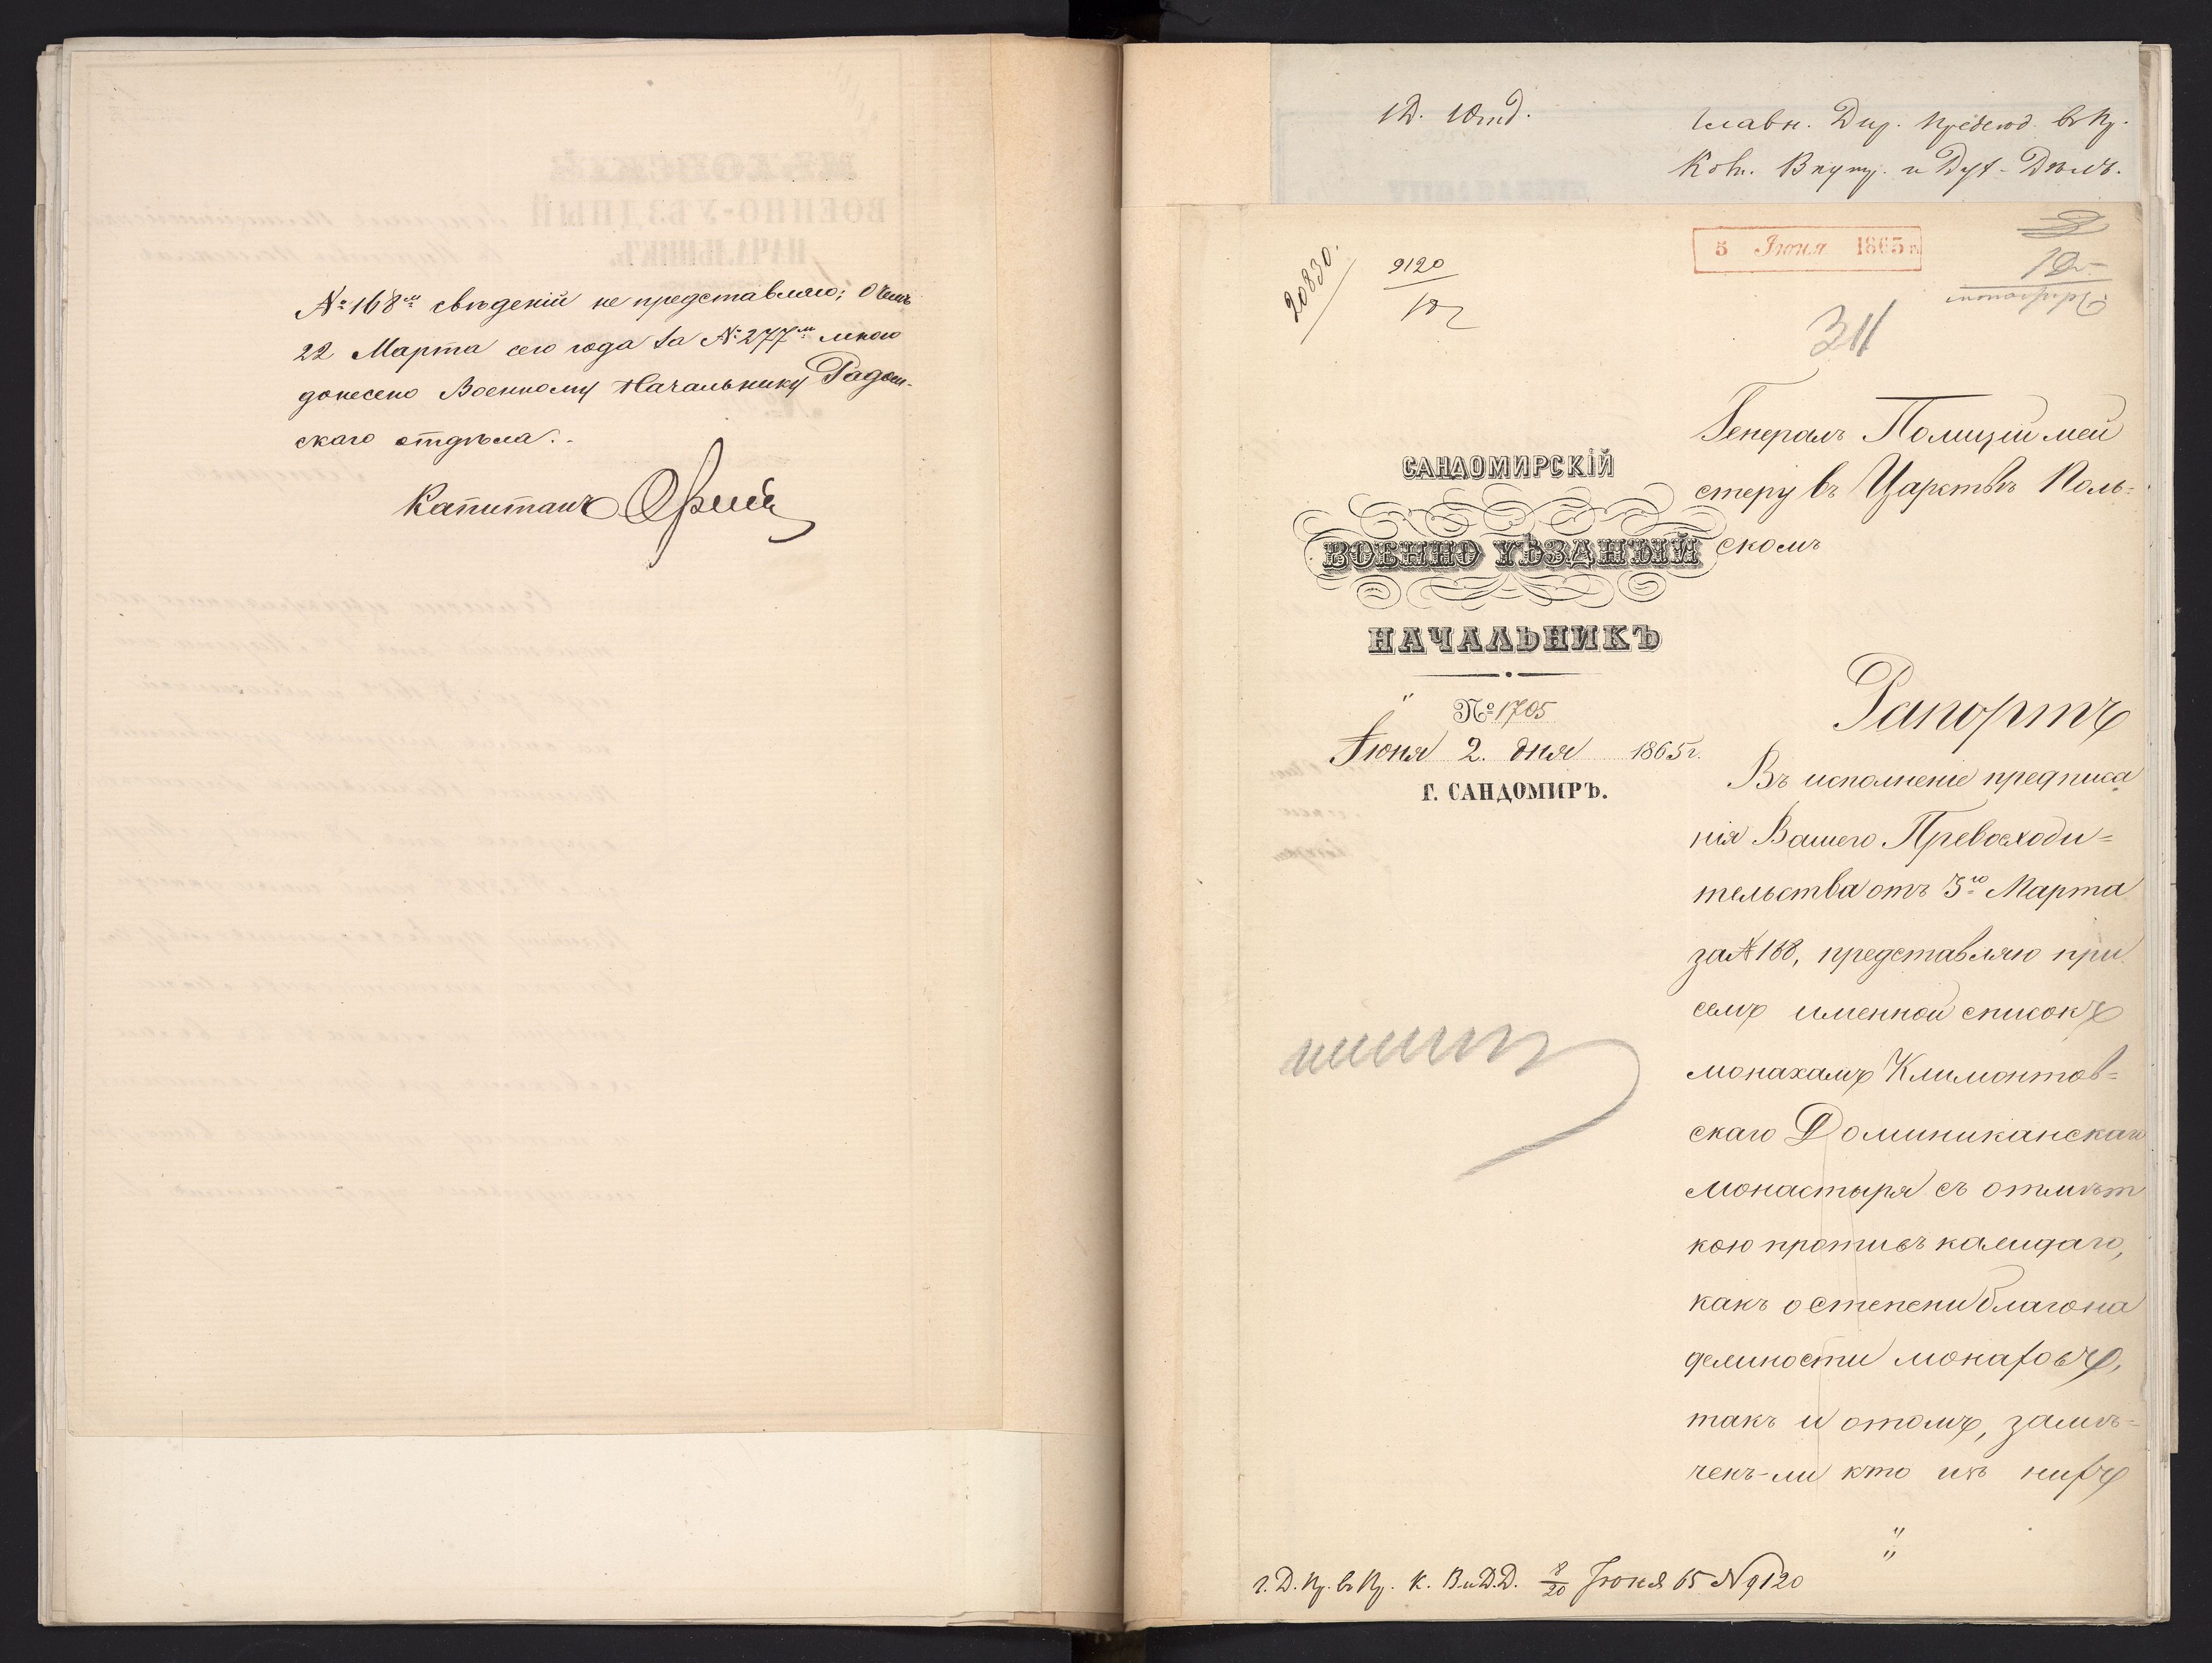 № 168м свѣденій не представляю; о чемъ
22 Марта сего года за № 277м мною
донесено Военному Начальнику Радом-
скаго отдѣла.
Капитанъ
Главн. Дир. Предсѣд. въ Пр.
Ком. Внутр. и Дух. Дѣлъ.
5 Іюня 1865 г.
20830.
9120
311
Генералъ Полицiймей
стеру въ Царствѣ Поль-
скомъ
САНДОМИРСКІЙ
ВОЕННО УѢЗДНЫЙ
НАЧАЛЬНИКЪ
№ 1705
Іюня 2. дня 1865 г.
Г. САНДОМИРЪ.
Рапортъ
Въ исполненіе предписа
нія Вашего Превосходи-
тельства отъ 3го Марта
за № 168, представляю при
семъ именной списокъ
монахамъ Климонтов-
скаго Доминиканскаго
монастыря съ отмѣт
кою противъ каждаго,
какъ о степени благона
дежности монаховъ,
такъ и о томъ, замѣ-
ченъ-ли кто изъ нихъ
Г. Д. Пр. въ Пр. К. В. и Д. Д. 8/20 Іюня 65 № 9120